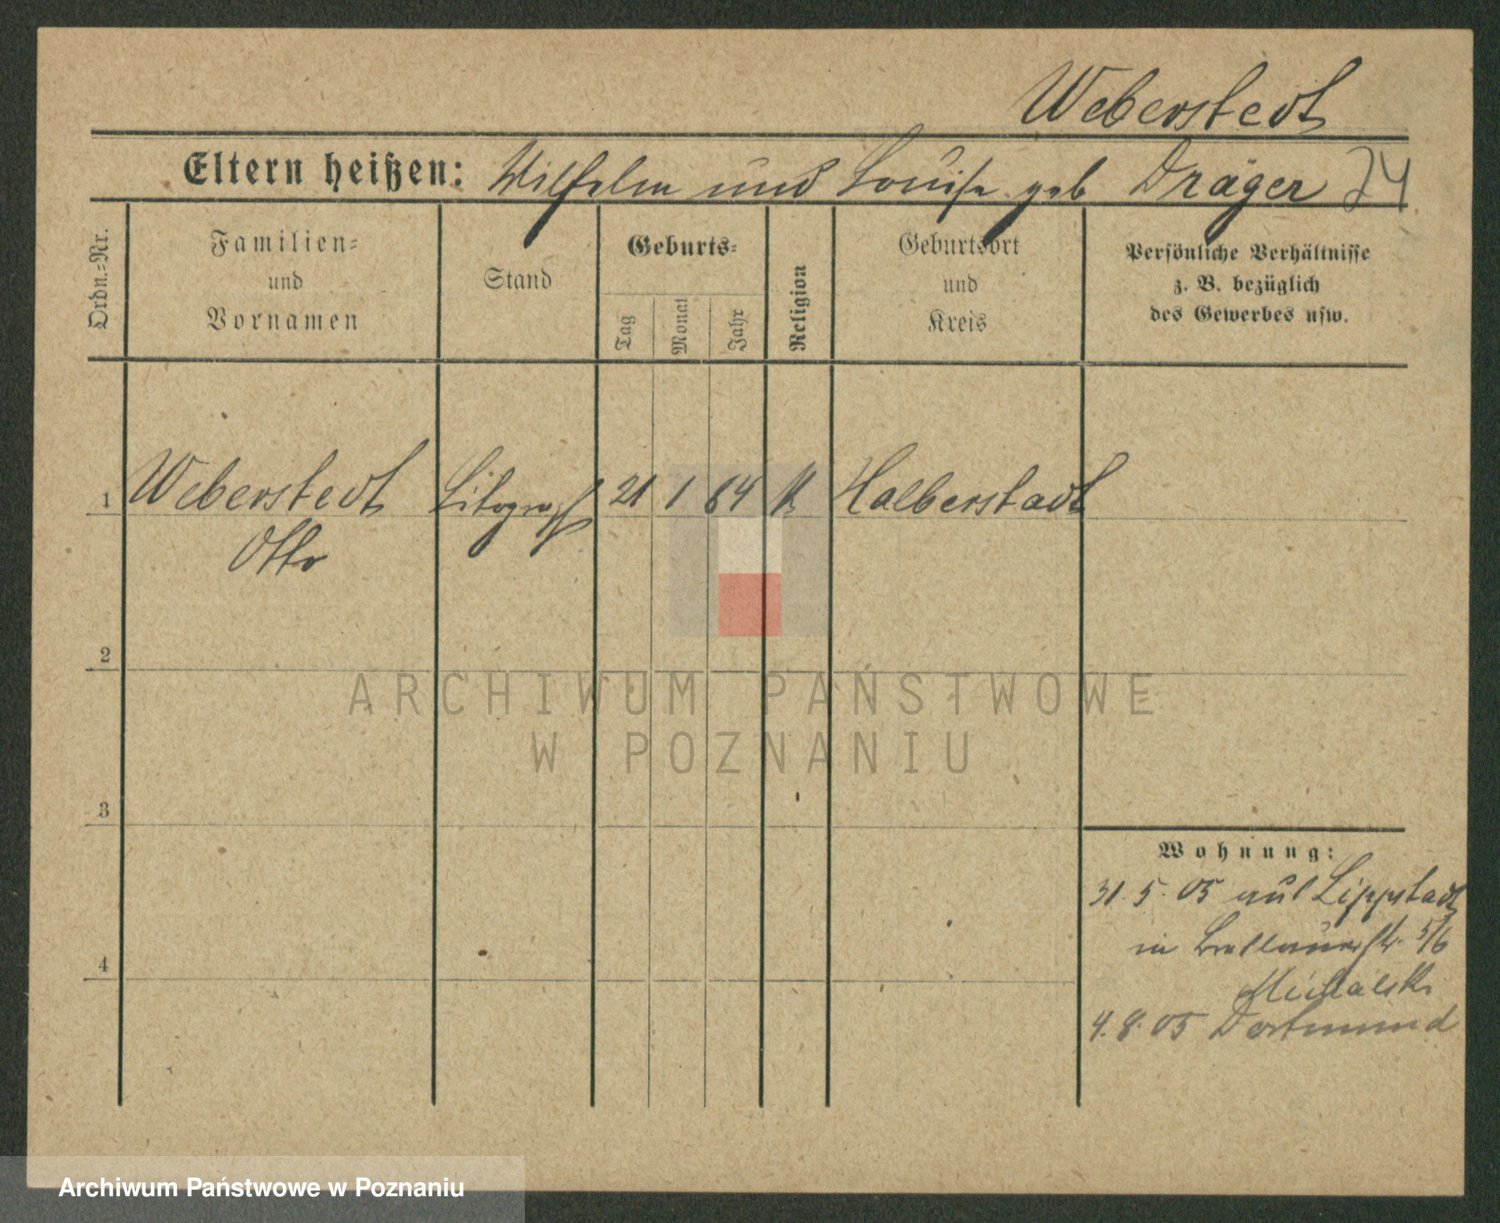 Weberstedt
Eltern heißen: Wilhelm und Louise geb Dräger 74
Ordn.=Nr.
Familien=
und
Vornamen
Stand
Geburts=
Tag
Monat
Jahr
Religion
Geburtsort
und
Kreis
Persönliche Verhältnisse
z. B. bezüglich
des Gewerbes usw.
1 Weberstedt Litograf 21 1 64 K Halberstadt
Otto
2
ARCHIWUM PAŃSTWOWE
W POZNANIU
3
Wohnung:
31. 5. 05 aus Lippstadt
in Breslauerstr. 5/6
4
4. 8. 05 Dortmund
Archiwum Państwowe w Poznaniu